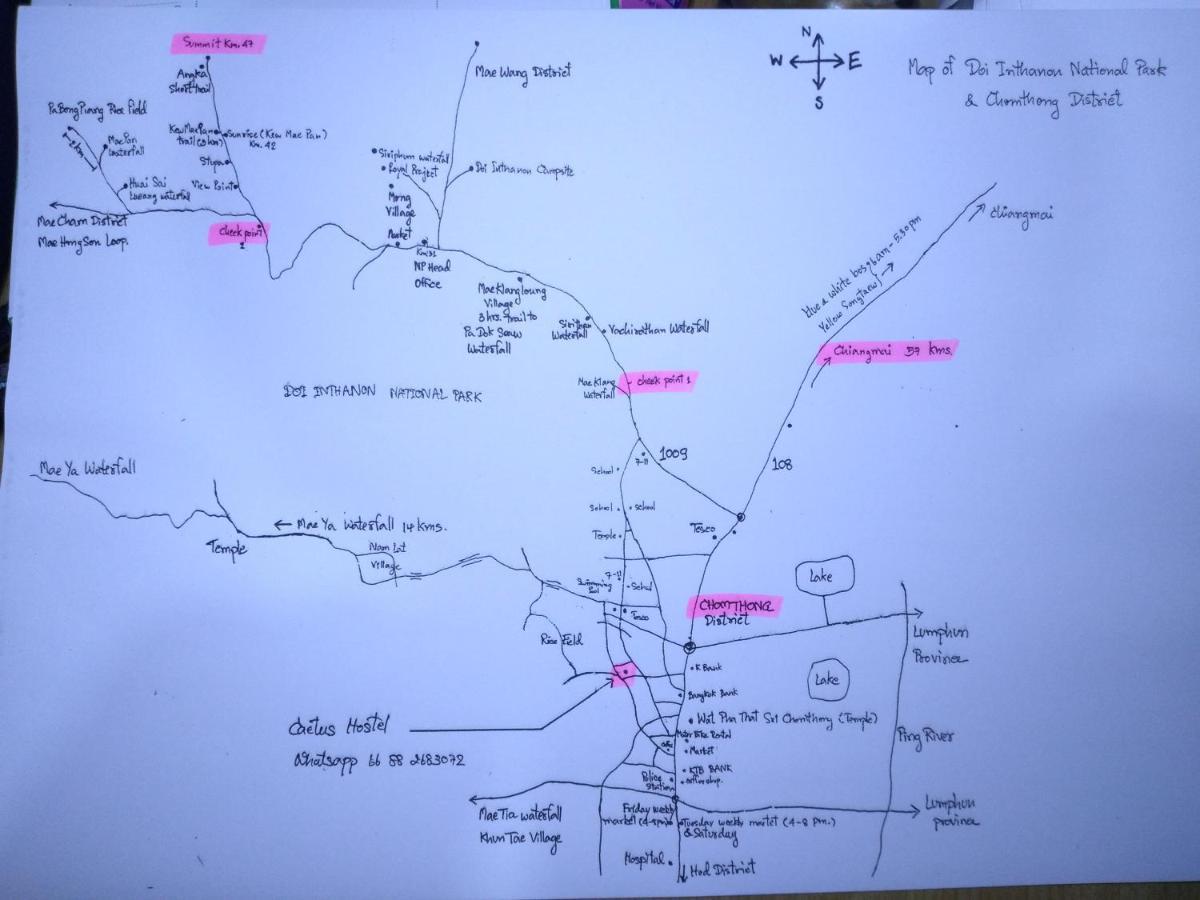 Map of Doi Inthanon National Park
& Chomthong District
N
W E
S
Summit Km. 47
Angka
Short trail
Kew Mae Pan
trail (3 km)
Sunrise (Kew Mae Pan)
Km. 42
Stupa
View Point
Check point
2
Pa Bong Piang Rice Field
Mae Pan
Waterfall
Huai Sai
Lueang Waterfal
Mae Cham District
Mae Hong Son Loop.
Mae Wang District
Siriphum Waterfal
Royal Project
Doi Inthanon Campsite
Mong
Village
Market
Km 31
NP Head
Office
Mae Klangloung
Village
3 hrs. trail to
Pa Dok Seaw
Waterfall
Sirithan
Waterfall
Vachirathan Waterfall
Mae Klang
Waterfall
Check point 1
DOI INTHANON NATIONAL PARK
Chiangmai
Yellow Songtaew
Chiangmai 57 kms.
1009
108
7-11
School
School
School
Temple
Tesco
Mae Ya Waterfall
← Mae Ya Waterfall 14 kms.
Temple
Nam Lat
Village
7-11
Swimming
Pool
School
Tesco
Rice Field
CHOMTHONG
District
Lake
Lumphun
Province
K Bank
Lake
Bangkok Bank
Wat Pha That Sri Chomthong (Temple)
Motor Bike Rental
Market
KTB BANK
Coffee shop.
Police
Station
Ping River
Cactus Hostel
Whatsapp 66 88 2683072
Mae Tia Waterfall
Khun Tae Village
Friday weekly
market
Tuesday weekly market (4-8 pm.)
& Saturday
Lumphun
province
Hospital
Hod District